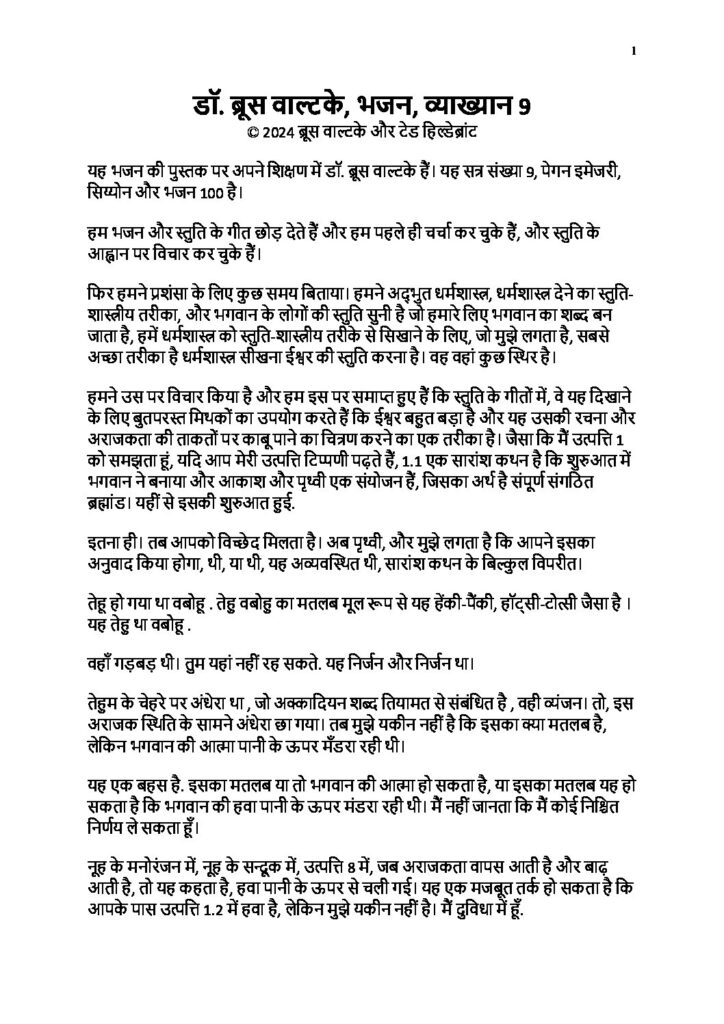 1
डॉ. ब्रूस वाल्टके, भजन, व्याख्यान 9
© 2024 ब्रूस वाल्टके और टेड हिल्डेब्रांट
यह भजन की पुस्तक पर अपने शिक्षण में डॉ. ब्रूस वाल्टके हैं। यह सत्र संख्या 9, पेगन इमेजरी,
सिय्योन और भजन 100 है।
हम भजन और स्तुति के गीत छोड़ देते हैं और हम पहले ही चर्चा कर चुके हैं, और स्तुति के
आह्वान पर विचार कर चुके हैं।
फिर हमने प्रशंसा के लिए कुछ समय बिताया। हमने अद्भुत धर्मशास्त्र, धर्मशास्त्र देने का स्तुति-
शास्त्रीय तरीका, और भगवान के लोगों की स्तुति सुनी है जो हमारे लिए भगवान का शब्द बन
जाता है, हमें धर्मशास्त्र को स्तुति-शास्त्रीय तरीके से सिखाने के लिए, जो मुझे लगता है, सबसे
अच्छा तरीका है धर्मशास्त्र सीखना ईश्वर की स्तुति करना है। वह वहां कुछ स्थिर है।
हमने उस पर विचार किया है और हम इस पर समाप्त हुए हैं कि स्तुति के गीतों में, वे यह दिखाने
के लिए बुतपरस्त मिथकों का उपयोग करते हैं कि ईश्वर बहुत बड़ा है और यह उसकी रचना और
अराजकता की ताकतों पर काबू पाने का चित्रण करने का एक तरीका है। जैसा कि मैं उत्पत्ति 1
को समझता हूं, यदि आप मेरी उत्पत्ति टिप्पणी पढ़ते हैं, 1.1 एक सारांश कथन है कि शुरुआत में
भगवान ने बनाया और आकाश और पृथ्वी एक संयोजन हैं, जिसका अर्थ है संपूर्ण संगठित
ब्रह्मांड। यहीं से इसकी शुरुआत हुई.
इतना ही। तब आपको विच्छेद मिलता है। अब पृथ्वी, और मुझे लगता है कि आपने इसका
अनुवाद किया होगा, थी, या थी, यह अव्यवस्थित थी, सारांश कथन के बिल्कुल विपरीत।
तेहू हो गया था वबोहू . तेहु वबोहु का मतलब मूल रूप से यह हेंकी-पैंकी, हॉट्सी-टोत्सी जैसा है ।
यह तेहु था वबोहू .
वहाँ गड़बड़ थी। तुम यहां नहीं रह सकते. यह निर्जन और निर्जन था।
तेहुम के चेहरे पर अंधेरा था , जो अक्कादियन शब्द तियामत से संबंधित है , वही व्यंजन। तो, इस
अराजक स्थिति के सामने अंधेरा छा गया। तब मुझे यकीन नहीं है कि इसका क्या मतलब है,
लेकिन भगवान की आत्मा पानी के ऊपर मँडरा रही थी।
यह एक बहस है. इसका मतलब या तो भगवान की आत्मा हो सकता है, या इसका मतलब यह हो
सकता है कि भगवान की हवा पानी के ऊपर मंडरा रही थी। मैं नहीं जानता कि मैं कोई निश्चित
निर्णय ले सकता हूँ।
नूह के मनोरंजन में, नूह के सन्दूक में, उत्पत्ति 8 में, जब अराजकता वापस आती है और बाढ़
आती है, तो यह कहता है, हवा पानी के ऊपर से चली गई। यह एक मजबूत तर्क हो सकता है कि
आपके पास उत्पत्ति 1.2 में हवा है, लेकिन मुझे यकीन नहीं है। मैं दुविधा में हूँ.